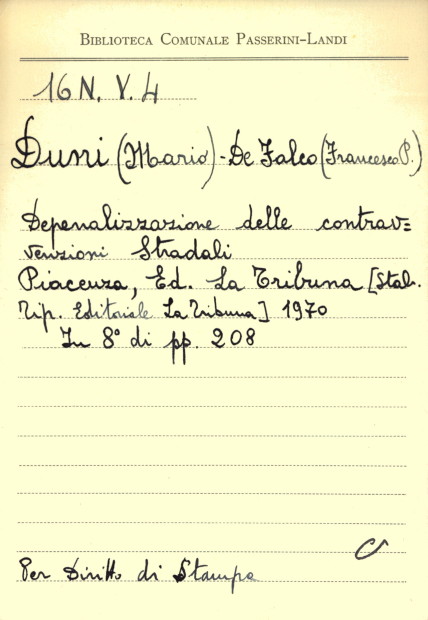 BIBLIOTECA COMUNALE PASSERINI-LANDI
16 N. V. 4
Duni (Mario) - De Falco (Francesco P.)
Depenalizzazione delle contrav=
venzioni Stradali
Piacenza, Ed. La Tribuna [Stab.
Tip. Editoriale La Tribuna] 1970
In 8° di pp. 208
Per Diritto di Stampa